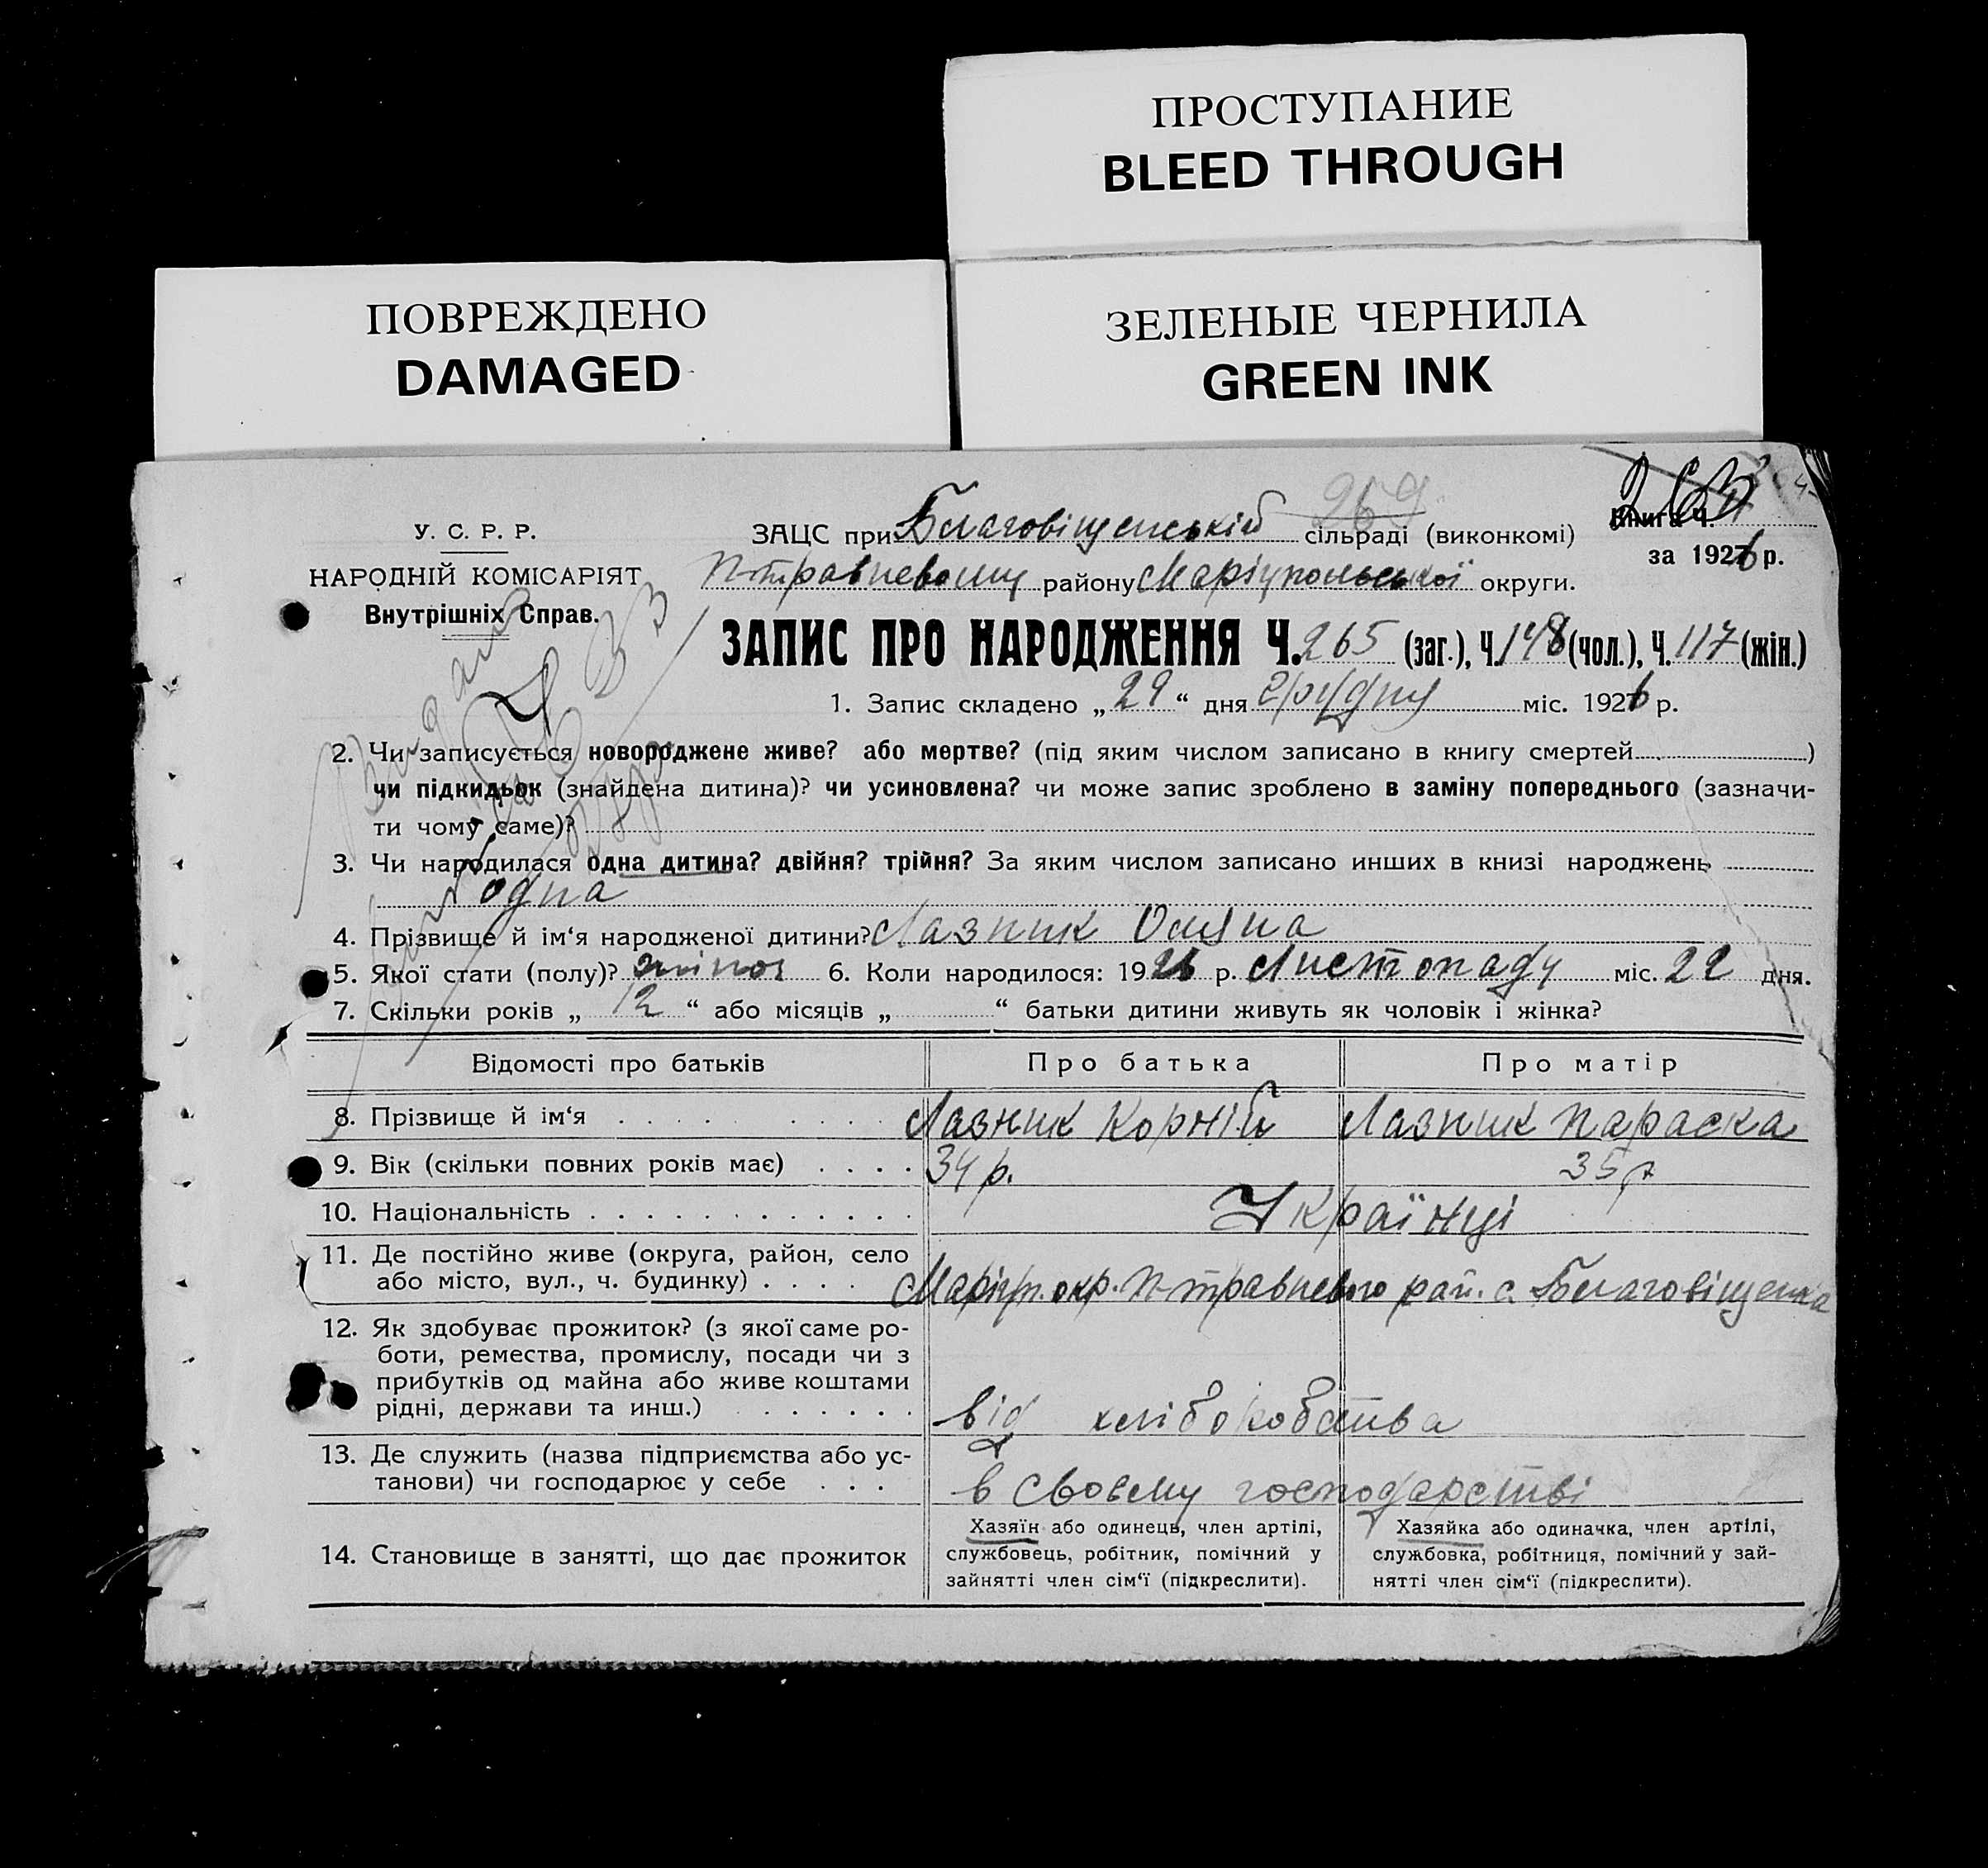 ПРОСТУПАНИЕ
BLEED THROUGH
ПОВРЕЖДЕНО
DAMAGED
ЗЕЛЕНЫЕ ЧЕРНИЛА
GREEN INK
У. С. Р. Р.
НАРОДНІЙ КОМІСАРІЯТ
Внутрішніх Справ.
269
ЗАЦС при Благовіщенській сільраді (виконкомі)
П-травневому району Маріупольської округи.
Книга Ч.
за 1926 р.
ЗАПИС ПРО НАРОДЖЕННЯ Ч. 265 (заг.), Ч. 148 (чол.), Ч. 117 (жін.)
1. Запис складено „ 29 “ дня Грудну міс. 1926 р.
2. Чи записується новороджене живе? або мертве? (під яким числом записано в книгу смертей )
чи підкидьок (знайдена дитина)? чи усиновлена? чи може запис зроблено в заміну попереднього (зазначи-
ти чому саме)?
3. Чи народилася одна дитина? двійня? трійня? За яким числом записано инших в книзі народжень
одна
4. Прізвище й ім‘я народженої дитини? Лазник Оляна
5. Якої стати (полу)? жіноч 6. Коли народилося: 1926 р. Листопаду міс. 22 дня.
7. Скільки років „ 12 “ або місяців „ “ батьки дитини живуть як чоловік і жінка?
Відомості про батьків Про батька Про матір
8. Прізвище й ім‘я Лазник Корній Лазник Параска
9. Вік (скільки повних років має) 34 р. 35 р
10. Національність Українці
11. Де постійно живе (округа, район, село
або місто, вул., ч. будинку) Маріуп. окр. П-травневого рай. с. Благовіщенка
12. Як здобуває прожиток? (з якої саме ро-
боти, ремества, промислу, посади чи з
прибутків од майна або живе коштами
рідні, держави та инш.) від хліборобства
13. Де служить (назва підприємства або ус-
танови) чи господарює у себе в своєму господарстві
14. Становище в занятті, що дає прожиток
Хазяїн або одинець, член артілі,
службовець, робітник, помічний у
зайнятті член сім‘ї (підкреслити).
Хазяйка або одиначка, член артілі,
службовка, робітниця, помічний у зай-
нятті член сім‘ї (підкреслити).